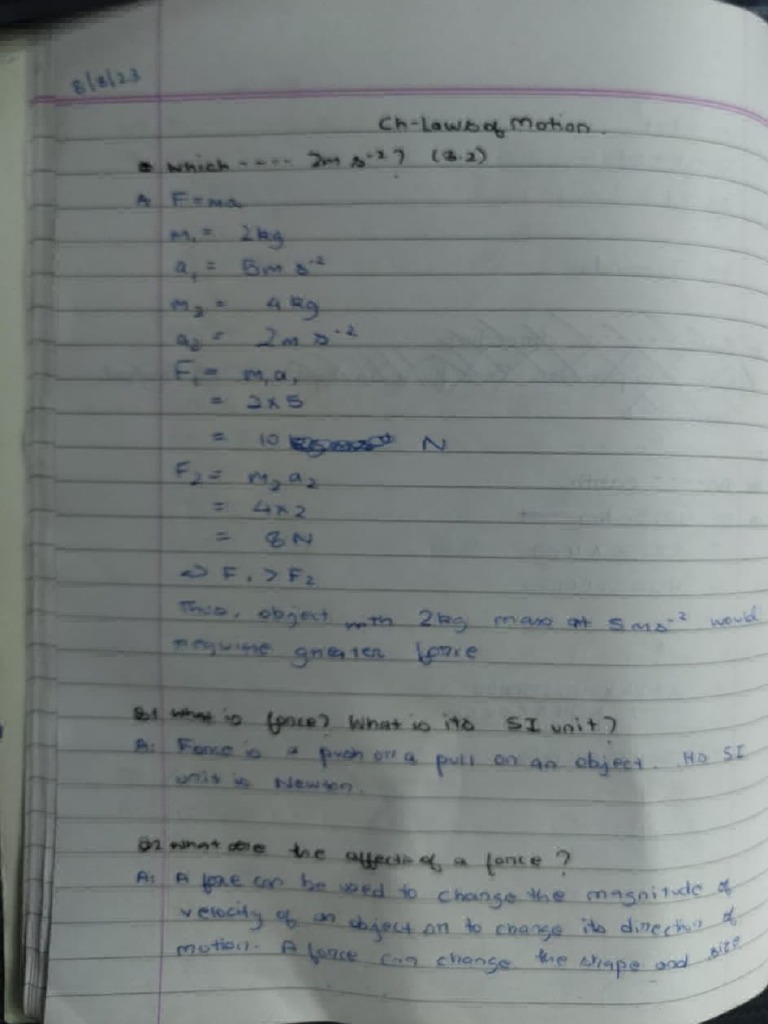 8/8/23
Ch-Laws of Motion.
which ---- 2m s⁻²? (8.2)
A F=ma
m₁ = 2kg
a₁ = 5m s⁻²
m₂ = 4kg
a₂ = 2m s⁻²
F₁ = m₁a₁
= 2×5
= 10 N
F₂ = m₂a₂
= 4×2
= 8N
⇒ F₁ > F₂
Thus, object with 2kg mass at 5ms⁻² would
require greater force
Q1 What is force? What is its SI unit?
A: Force is a push or a pull on an object. Its SI
unit is Newton.
Q2 What are the affects of a force?
A: A force can be used to change the magnitude of
velocity of an object or to change its direction of
motion. A force can change the shape and size